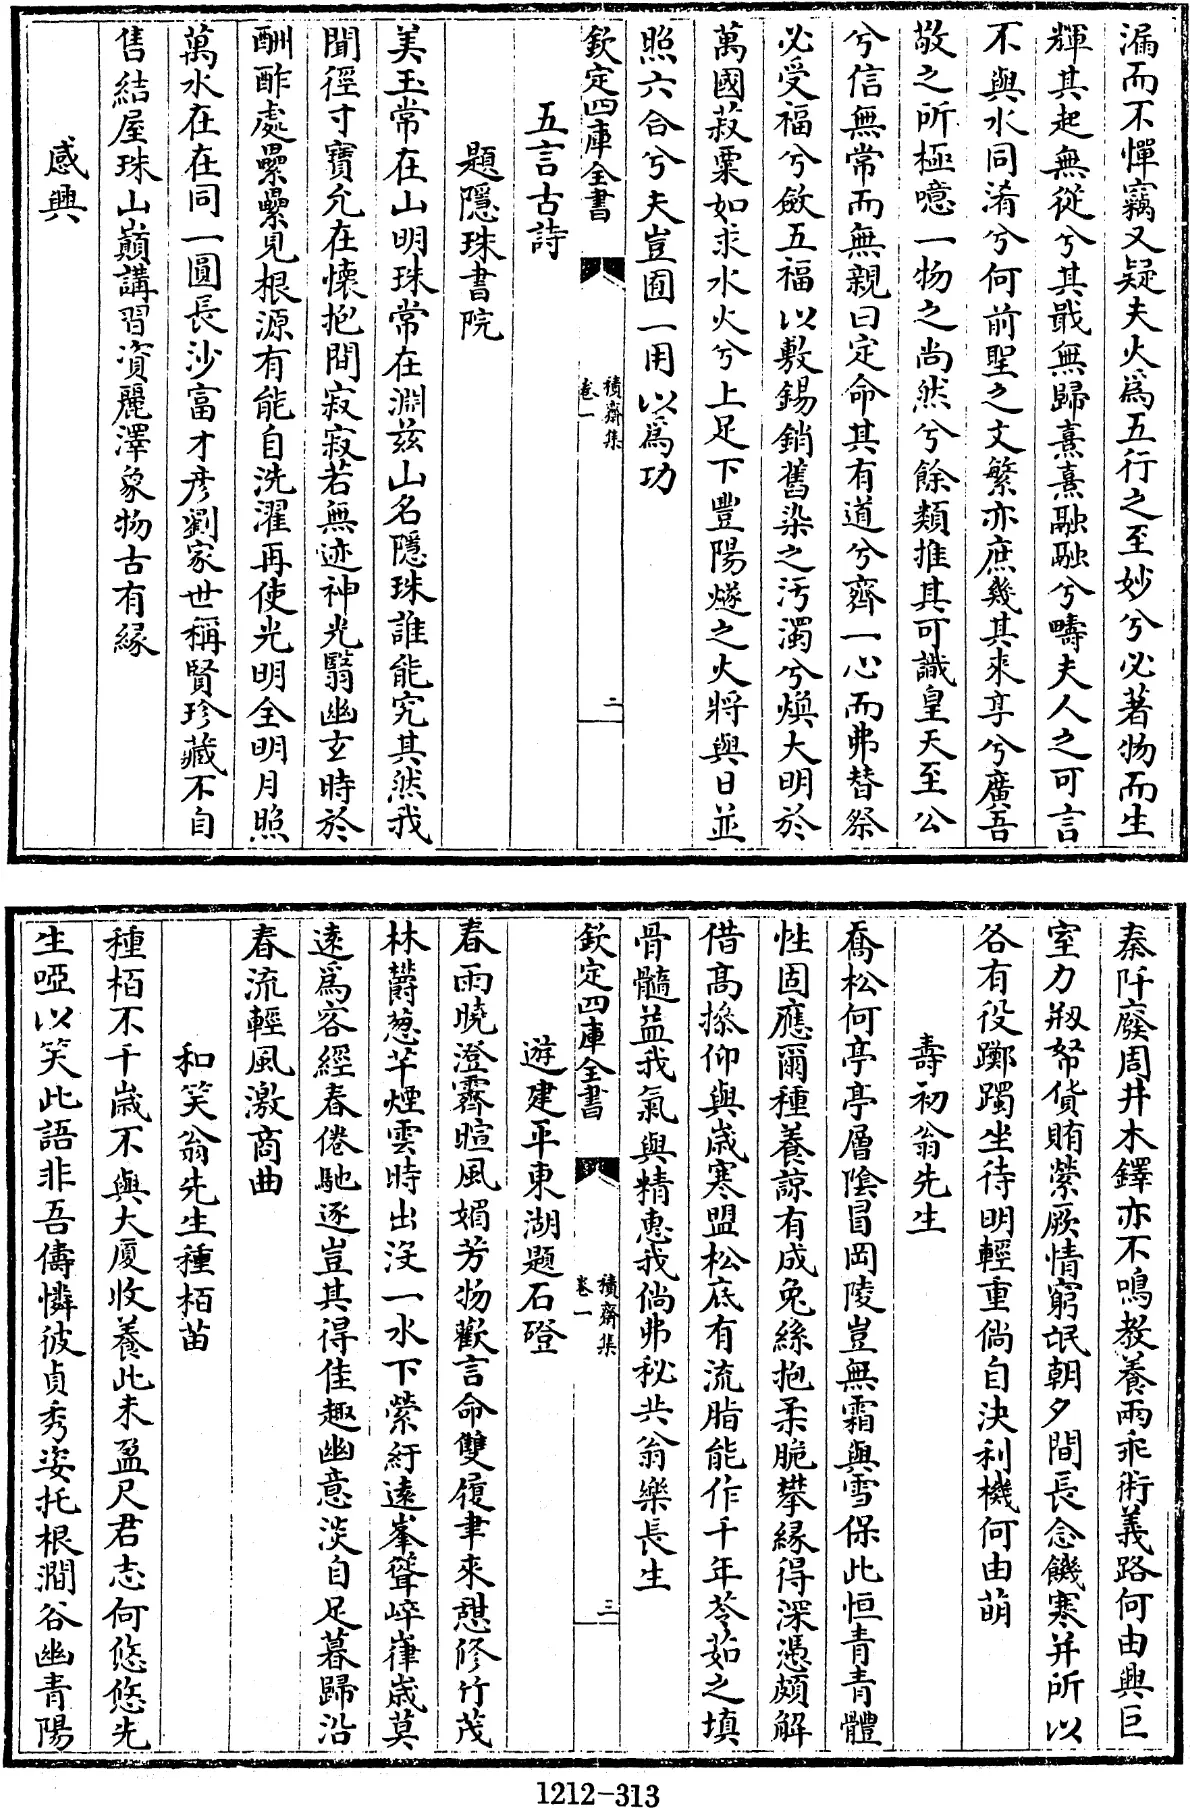 漏而不憚竊又疑夫火爲五行之至妙兮必著物而生
輝其起無從兮其戢無歸熹熹融融兮疇夫人之可言
不與水同淆兮何前聖之文繁亦庶幾其來享兮廣吾
敬之所極噫一物之尚然兮餘類推其可識皇天至公
兮信無常而無親曰定命其有道兮齊一心而弗替祭
必受福兮斂五福以敷錫銷舊染之汚濁兮煥大明於
萬國菽粟如求水火兮上足下豐陽燧之火將與日並
照六合兮夫豈囿一用以爲功
欽定四庫全書
積齋集
卷一
二
五言古詩
題隱珠書院
美玉常在山明珠常在淵茲山名隱珠誰能究其然我
聞徑寸寶允在懷抱間寂寂若無迹神光翳幽玄時於
酬酢處纍纍見根源有能自洗濯再使光明全明月照
萬水在在同一圓長沙富才彥劉家世稱賢珍藏不自
售結屋珠山巔講習資麗澤象物古有緣
感興
秦阡廢周井木鐸亦不鳴教養兩乖術義路何由興巨
室力剏帑貨賄縈厥情窮氓朝夕間長念饑寒并所以
各有役躑躅坐待明輕重倘自決利機何由萌
壽初翁先生
喬松何亭亭層陰冒岡陵豈無霜與雪保此恒青青體
性固應爾種養諒有成兔絲抱柔脆攀緣得深憑頗解
借高掾仰與歲寒盟松底有流脂能作千年苓茹之填
骨髓益我氣與精惠我倘弗秘共翁樂長生
欽定四庫全書
積齋集
卷一
三
遊建平東湖題石磴
春雨曉澄霽暄風媚芳物歡言命雙履聿來憇修竹茂
林欝葱芊煙雲時出沒一水下縈紆遠峯聳崒嵂歲莫
遠爲客經春倦馳逐豈其得佳趣幽意淡自足暮歸沿
春流輕風激商曲
和笑翁先生種栢苗
種栢不千歲不與大厦收養此未盈尺君志何悠悠先
生啞以笑此語非吾儔憐彼貞秀姿托根澗谷幽青陽
1212-313